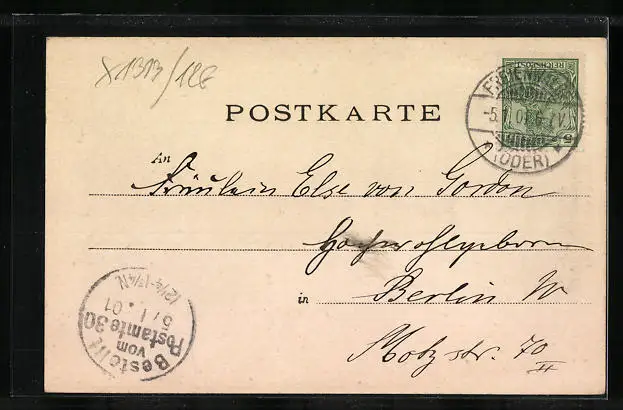 X1313/128
REICHSPOST
5
-5.1.01.6-7V.
(ODER)
POSTKARTE
An
Fräulein Else von Gordon
Hochwohlgeboren
in Berlin W
Motz str. 70 II
Bestellt
vom
Postamte 30
5/1.01
12¼-1¾N.